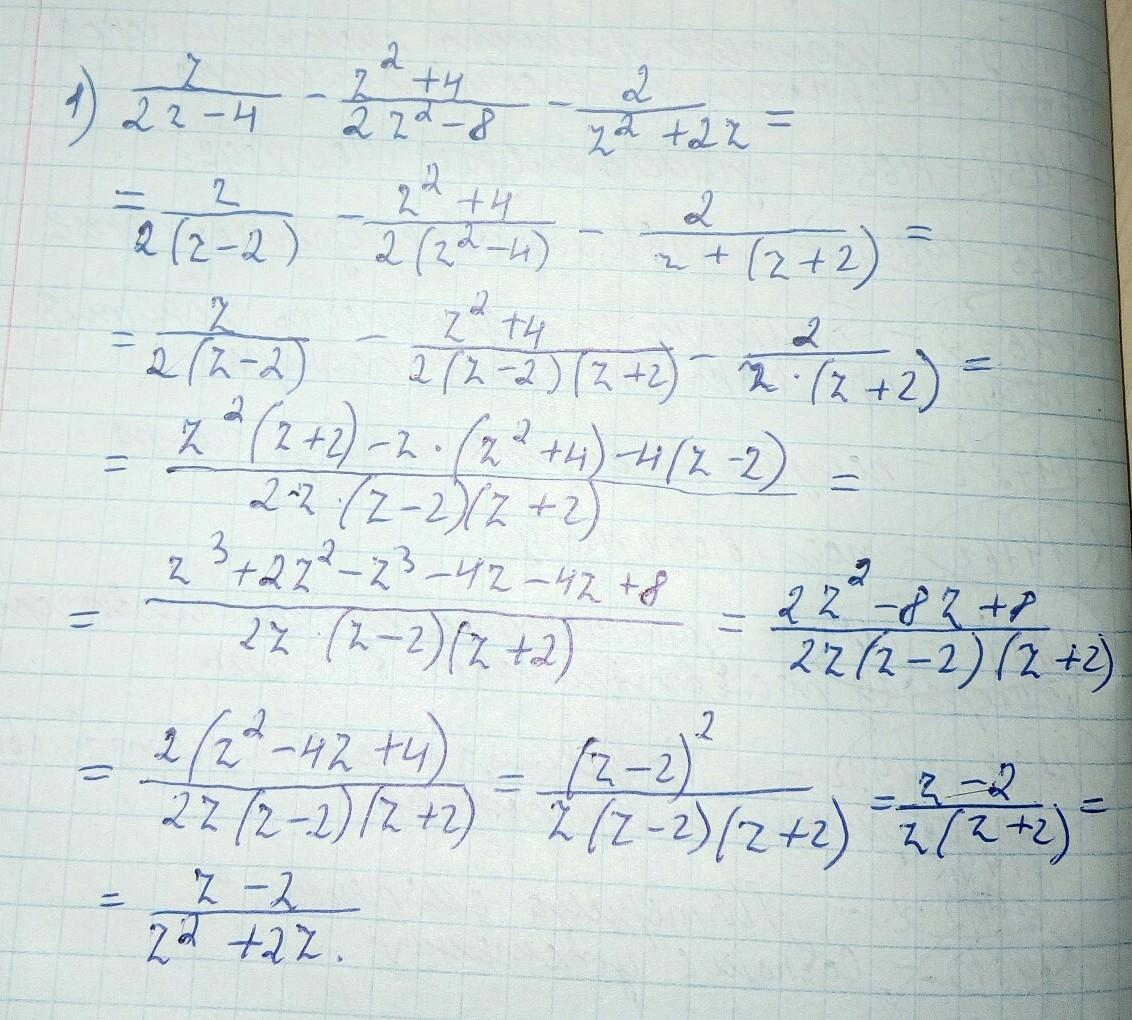 1) z/(2z-4) - (z²+4)/(2z²-8) - 2/(z²+2z) =
= z/(2(z-2)) - (z²+4)/(2(z²-4)) - 2/(z+(z+2)) =
= z/(2(z-2)) - (z²+4)/(2(z-2)(z+2)) - 2/(z·(z+2)) =
= (z²(z+2)-z·(z²+4)-4(z-2))/(2z·(z-2)(z+2)) =
= (z³+2z²-z³-4z-4z+8)/(2z·(z-2)(z+2)) = (2z²-8z+8)/(2z(z-2)(z+2))
= (2(z²-4z+4))/(2z(z-2)(z+2)) = (z-2)²/(z(z-2)(z+2)) = (z-2)/(z(z+2)) =
= (z-2)/(z²+2z).